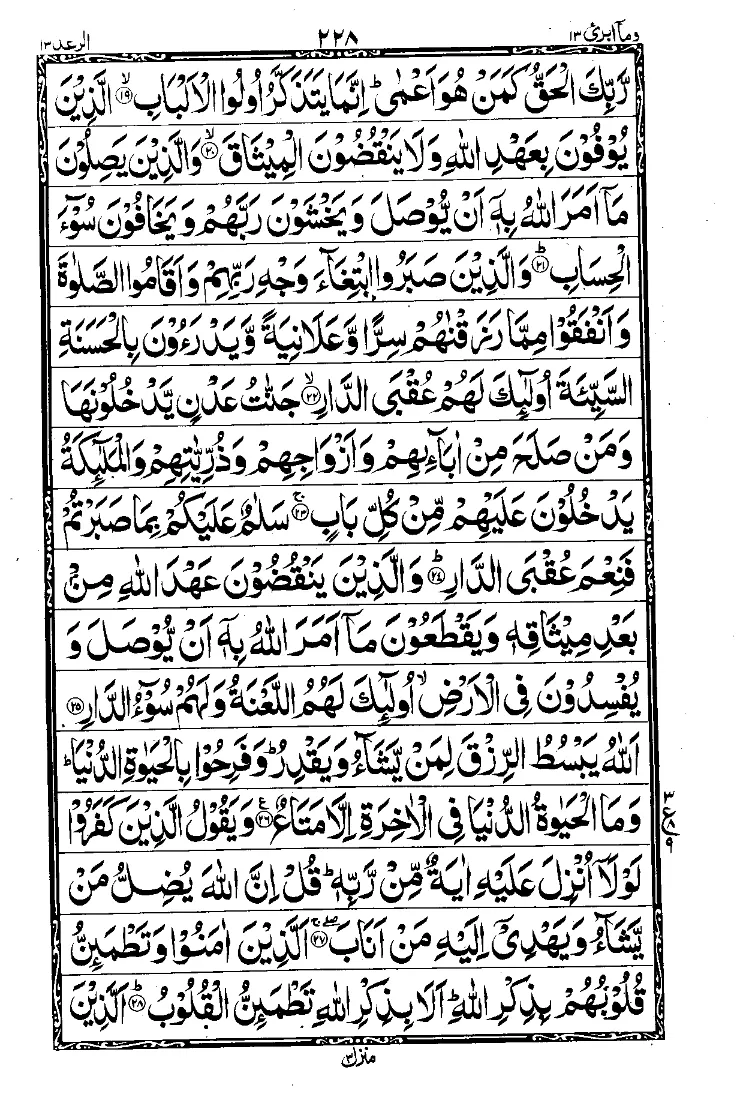 وما ابرئ ١٣
٢٢٨
الرعد ١٣
رَّبِّكَ الْحَقُّ كَمَنْ هُوَ اَعْمٰى ؕ اِنَّمَا يَتَذَكَّرُ اُولُوا الْاَلْبَابِ ۙ﴿۱۹﴾ الَّذِيْنَ
يُوْفُوْنَ بِعَهْدِ اللّٰهِ وَلَا يَنْقُضُوْنَ الْمِيْثَاقَ ۙ﴿۲۰﴾ وَالَّذِيْنَ يَصِلُوْنَ
مَاۤ اَمَرَ اللّٰهُ بِهٖۤ اَنْ يُّوْصَلَ وَيَخْشَوْنَ رَبَّهُمْ وَيَخَافُوْنَ سُوْٓءَ
الْحِسَابِ ؕ﴿۲۱﴾ وَالَّذِيْنَ صَبَرُوا ابْتِغَآءَ وَجْهِ رَبِّهِمْ وَاَقَامُوا الصَّلٰوةَ
وَاَنْفَقُوْا مِمَّا رَزَقْنٰهُمْ سِرًّا وَّعَلَانِيَةً وَّيَدْرَءُوْنَ بِالْحَسَنَةِ
السَّيِّئَةَ اُولٰٓئِكَ لَهُمْ عُقْبَى الدَّارِ ۙ﴿۲۲﴾ جَنّٰتُ عَدْنٍ يَّدْخُلُوْنَهَا
وَمَنْ صَلَحَ مِنْ اٰبَآئِهِمْ وَاَزْوَاجِهِمْ وَذُرِّيّٰتِهِمْ وَالْمَلٰٓئِكَةُ
يَدْخُلُوْنَ عَلَيْهِمْ مِّنْ كُلِّ بَابٍ ۚ﴿۲۳﴾ سَلٰمٌ عَلَيْكُمْ بِمَا صَبَرْتُمْ
فَنِعْمَ عُقْبَى الدَّارِ ؕ﴿۲۴﴾ وَالَّذِيْنَ يَنْقُضُوْنَ عَهْدَ اللّٰهِ مِنْۢ
بَعْدِ مِيْثَاقِهٖ وَيَقْطَعُوْنَ مَاۤ اَمَرَ اللّٰهُ بِهٖۤ اَنْ يُّوْصَلَ وَ
يُفْسِدُوْنَ فِى الْاَرْضِ ۙ اُولٰٓئِكَ لَهُمُ اللَّعْنَةُ وَلَهُمْ سُوْٓءُ الدَّارِ ﴿۲۵﴾
اَللّٰهُ يَبْسُطُ الرِّزْقَ لِمَنْ يَّشَآءُ وَيَقْدِرُ ؕ وَفَرِحُوْا بِالْحَيٰوةِ الدُّنْيَا ؕ
وَمَا الْحَيٰوةُ الدُّنْيَا فِى الْاٰخِرَةِ اِلَّا مَتَاعٌ ﴿۲۶﴾ع وَيَقُوْلُ الَّذِيْنَ كَفَرُوْا
٣
ع ٨
٩
لَوْلَاۤ اُنْزِلَ عَلَيْهِ اٰيَةٌ مِّنْ رَّبِّهٖ ؕ قُلْ اِنَّ اللّٰهَ يُضِلُّ مَنْ
يَّشَآءُ وَيَهْدِىْۤ اِلَيْهِ مَنْ اَنَابَ ۖۚ﴿۲۷﴾ اَلَّذِيْنَ اٰمَنُوْا وَتَطْمَئِنُّ
قُلُوْبُهُمْ بِذِكْرِ اللّٰهِ ؕ اَلَا بِذِكْرِ اللّٰهِ تَطْمَئِنُّ الْقُلُوْبُ ؕ﴿۲۸﴾ اَلَّذِيْنَ
منزل ٣